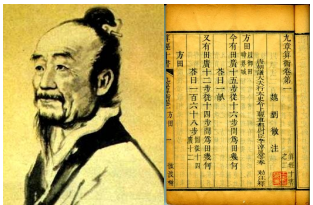 九章算術卷第一
魏劉徽注
方田
今有田廣十五步從十六步問為田幾何
荅曰一畝
又有田廣十二步從十四步問為田幾何
荅曰一百六十八步
方田